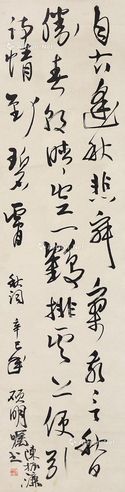 自古逢秋悲寂寥我言秋日
勝春朝晴空一鶴排雲上便引
詩情到碧霄
秋詞 辛巳年
碩明囑書
陳振濂